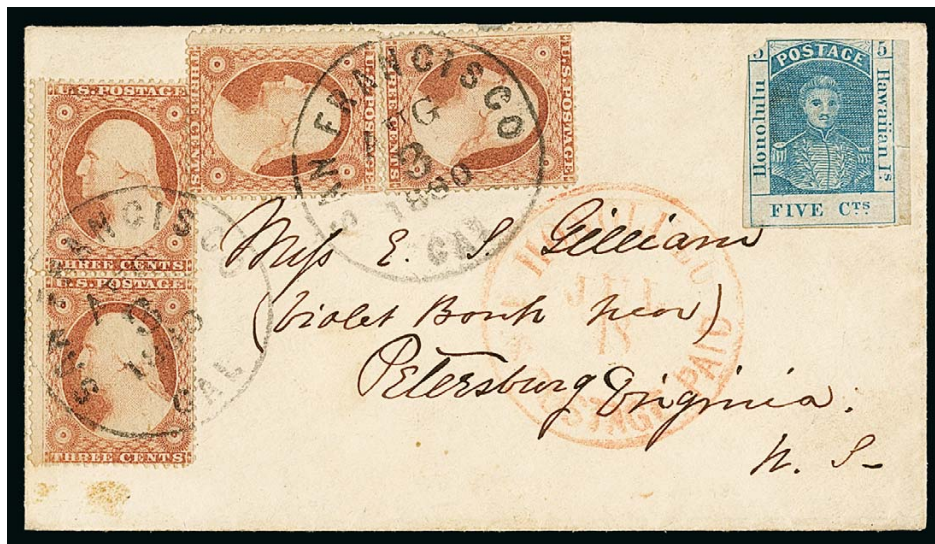 U.S. POSTAGE
THREE CENTS
U.S. POSTAGE
THREE CENTS
U.S. POSTAGE
THREE CENTS
U.S. POSTAGE
SAN FRANCISCO
AUG
3
1860
CAL
SAN FRANCISCO
3
1860
CAL
5 POSTAGE 5
Honolulu
Hawaiian Is
FIVE CTS
HONOLULU
JUL
POSTAGE PAID
Miss E. S. Gilliam
(Violet Bank near)
Petersburg Virginia.
U. S-